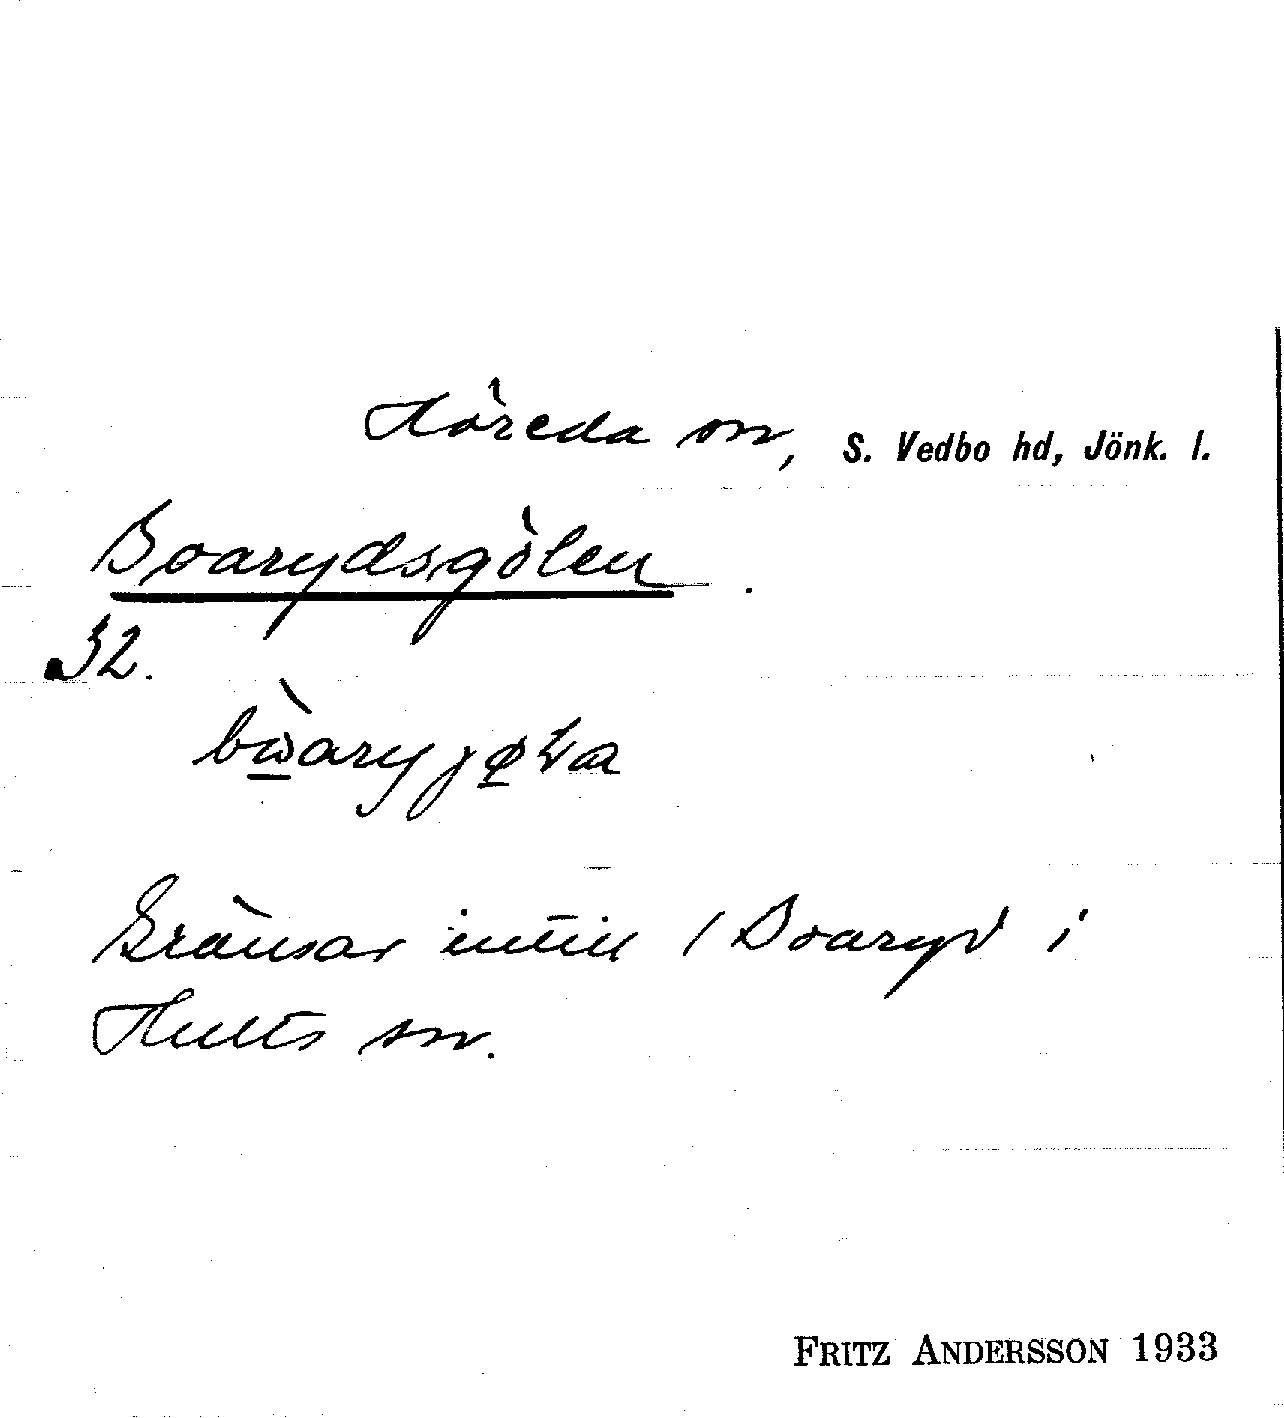 Höreda sn, S. Vedbo hd, Jönk. l.
Boarydsgölen.
32.
Gränsar intill / Boaryd i
Hults sn.
FRITZ ANDERSSON 1933